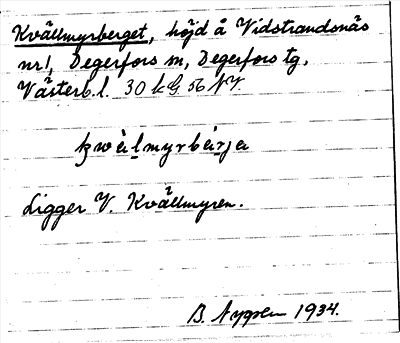 Kvällmyrberget, höjd å Vidstrandsnäs
nr 1, Degerfors sn, Degerfors tg,
Västerb. l. 30 k G. 56 NV.
kwèlmyrbærja
Ligger V. Kvällmyren.
B. Nygren 1934.